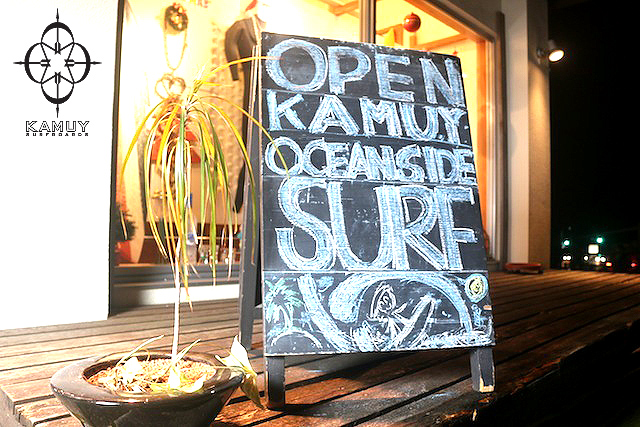 KAMUY
SURFBOARDS
OPEN
KAMUY
OCEANSIDE
SURF